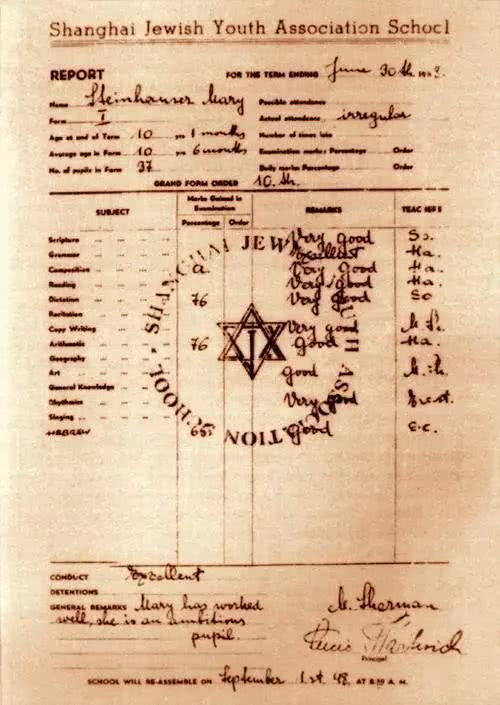 Shanghai Jewish Youth Association School
REPORT FOR THE TERM ENDING June 30th
Name Steinhauser Mary Possible attendance
Form I Actual attendance irregular
Age at end of Term 10 yrs 1 months Number of times late
Average age in Form 10 yrs 6 months Examination marks: Percentage Order
No. of pupils in Form 37 Daily marks Percentage Order
GRAND FORM ORDER 10. th.
SUBJECT Marks Gained in Examination REMARKS
Percentage Order
Scripture Very good So.
Grammar Excellent Ha.
Composition a Very good Ha.
Reading Very good Ha.
Dictation 76 Very good So
Recitation
Copy Writing Very good
Arithmetic 76 Good Ha.
Geography
Art Good
General Knowledge
Rhythmics Very good
Singing
HEBREW Good E.C.
SHANGHAI JEWISH YOUTH ASSOCIATION SCHOOL
CONDUCT Excellent
DETENTIONS
GENERAL REMARKS Mary has worked
well, she is an ambitious
pupil.
M. Sherman
Principal
SCHOOL WILL RE-ASSEMBLE ON September 1.st. 48. AT A. M.